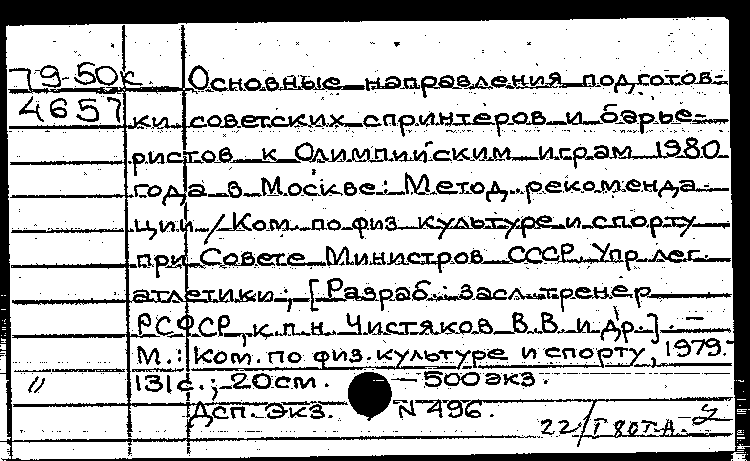 79-50к Основные направления подготов-
4657 ки советских спринтеров и барье-
ристов к Олимпийским играм 1980
года в Москве: Метод. рекоменда-
ции / Ком. по физ. культуре и спорту
при Совете Министров СССР. Упр. лег.
атлетики; [Разраб.: засл. тренер
РСФСР, к.п.н. Чистяков В.В. и др.]. —
М.: Ком. по физ. культуре и спорту, 1979.-
" 131 с.; 20 см. — 500 экз.
Дсп. экз. N 496.
22/I 80т.А.